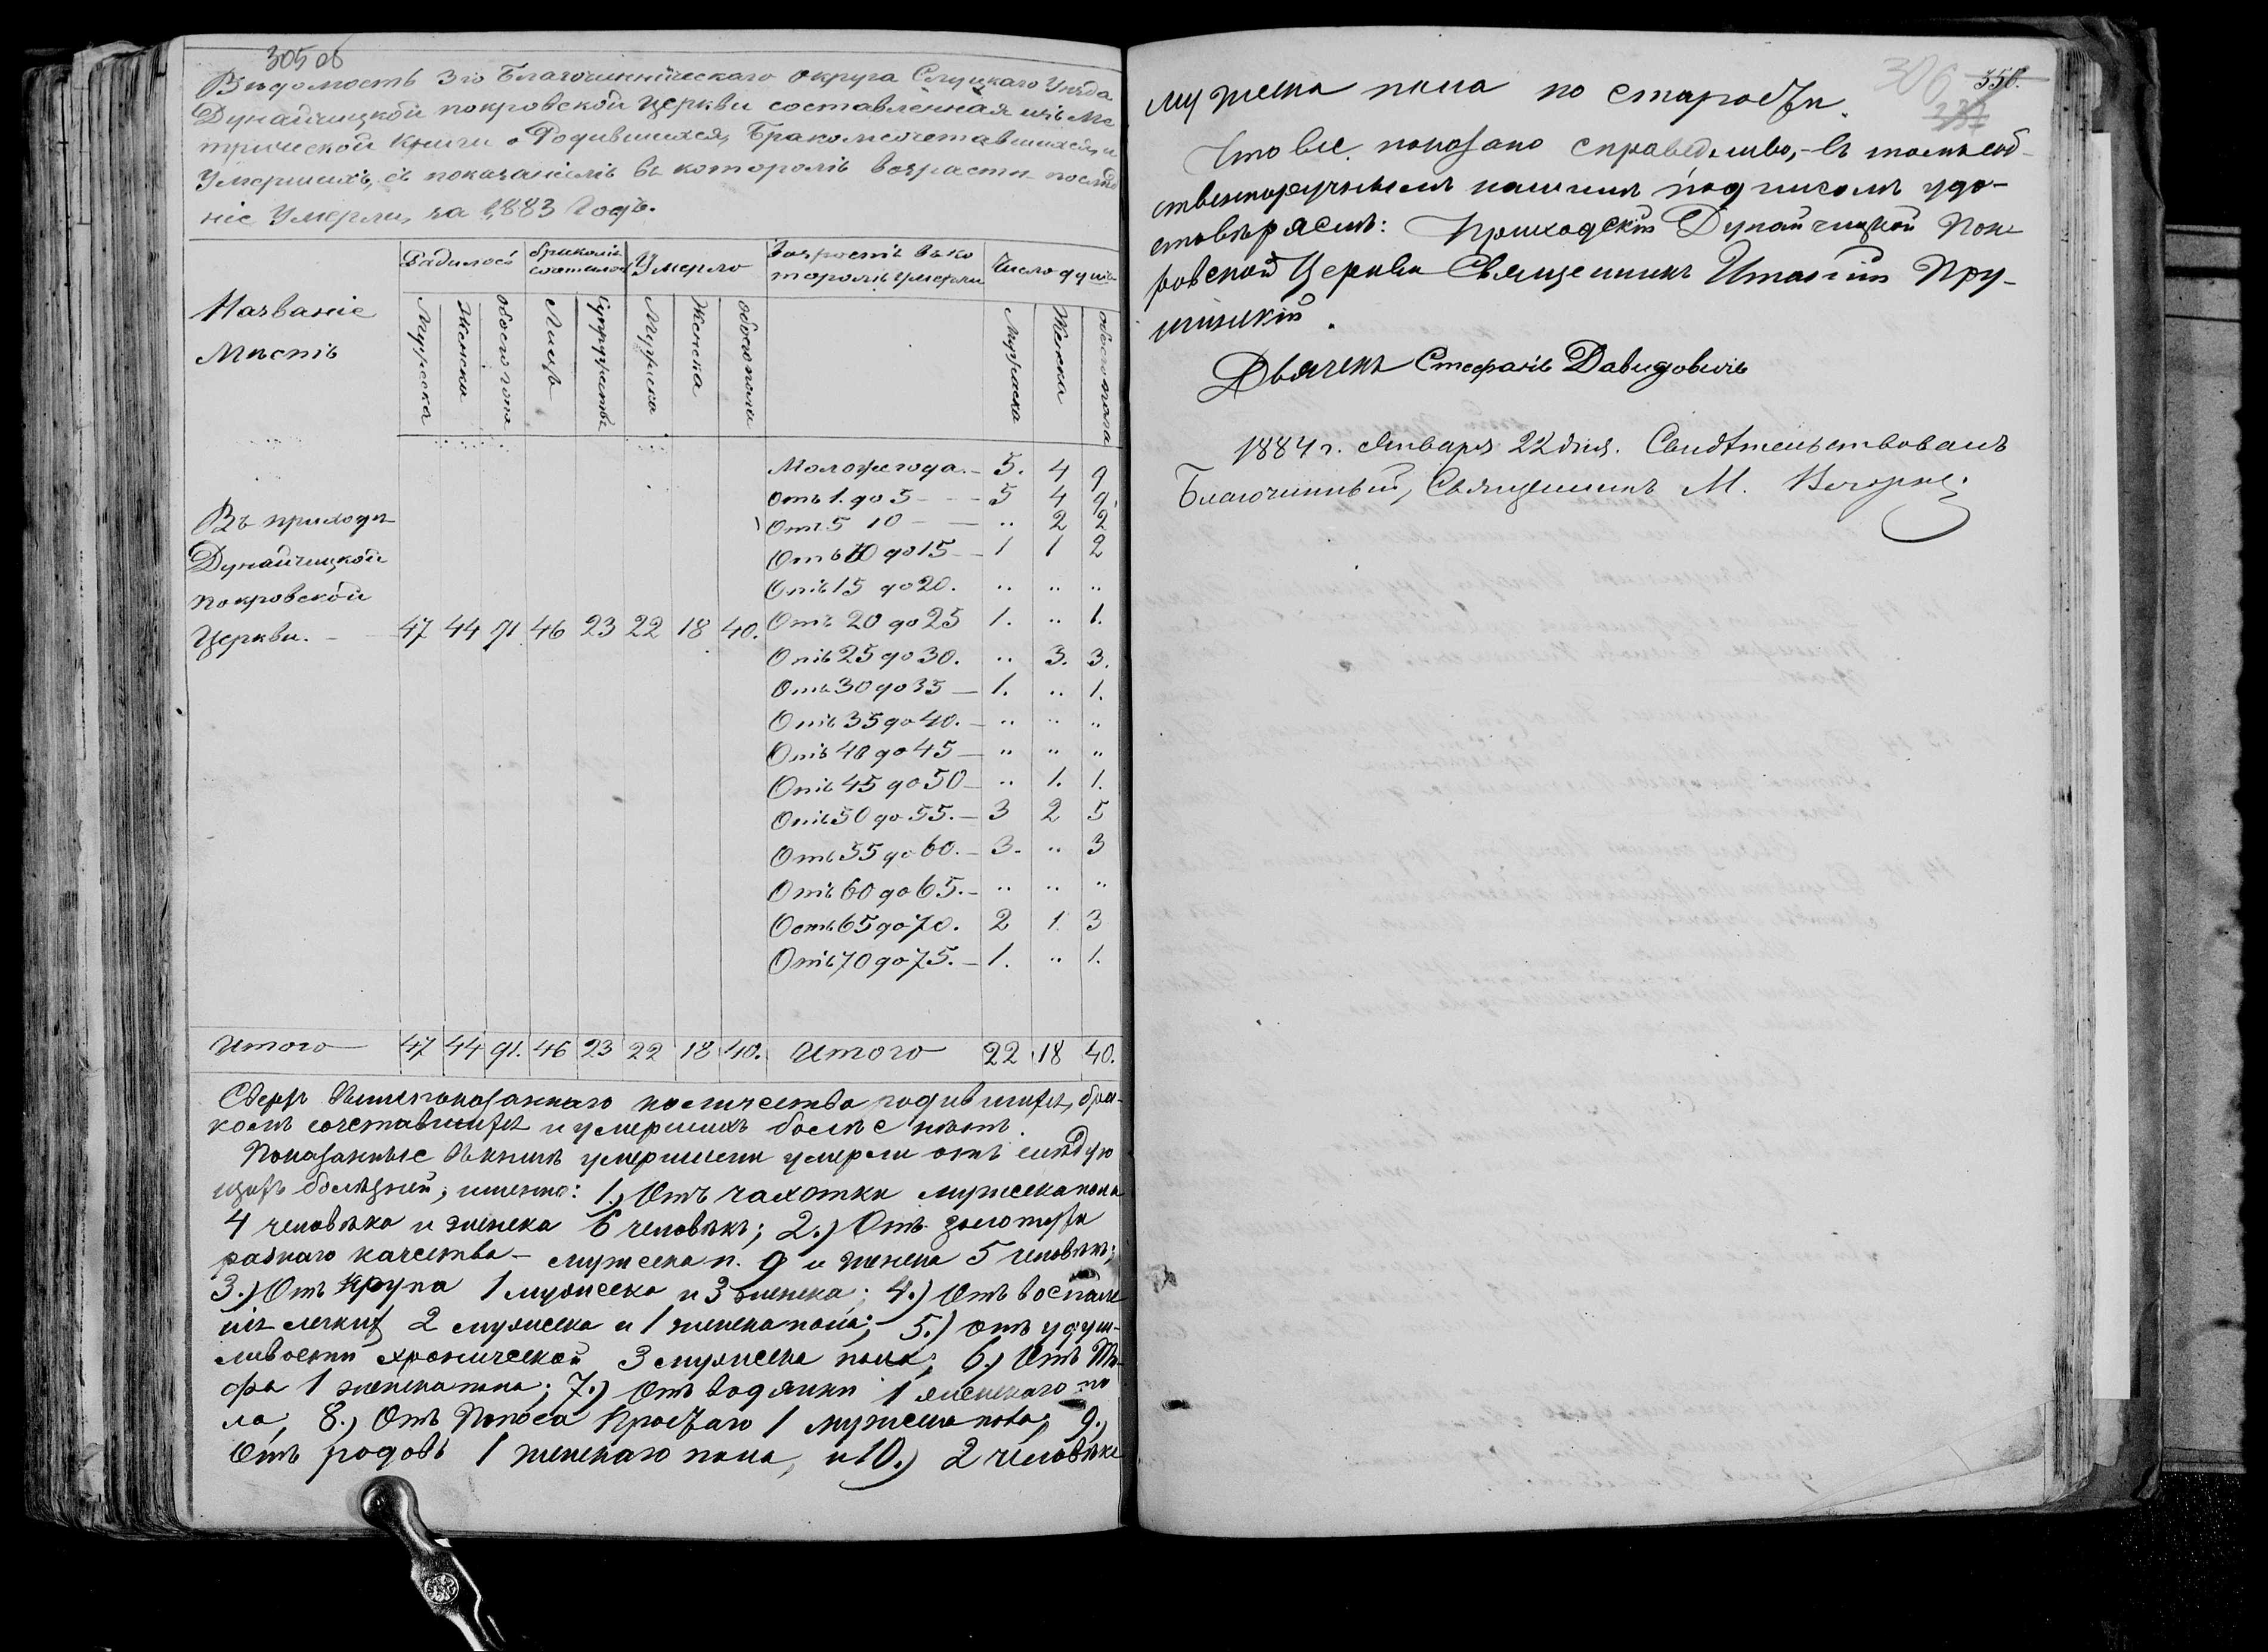 305 об
Вѣдомость 3го Благочинническаго округа Слуцкаго Уѣзда
Дунайчицкой покровской церкви составленная изъ Ме
трической Книги о Родившихся, Бракомсочетавшихся, и
Умершихъ, съ показаніемъ въ которомъ возрасти послѣд
ніе Умерли, за 1883 Годъ.
Названіе Мѣстъ
Радилось
бракомъ
Умерло
Возрастъ въ ко
торомъ умерли
Число душъ
Мужеска
Женска
обоего пола
Лицъ
Супружествъ
Мужеска
Женска
обоего пола
Мужеска
Женска
обоего пола
Моложе года. – 5. 4 9
Отъ 1. до 5 – – – 5 4 9
Отъ 5 10 – – „ 2 2
Отъ 10 до 15 – – 1 1 2
Отъ 15 до 20. „ „ „
Отъ 20 до 25 1. „ 1.
Отъ 25 до 30. „ 3. 3.
Отъ 30 до 35 – 1. „ 1.
Отъ 35 до 40. – „ „ „
Отъ 40 до 45 – „ „ „
Отъ 45 до 50 – „ 1. 1.
Отъ 50 до 55. – 3 2 5
Отъ 55 до 60. – 3. „ 3
Отъ 60 до 65. – „ „ „
Оотъ 65 до 70. 2 1 3
Отъ 70 до 75. – 1. „ 1.
Въ приходѣ
Дунайчицкой
покровской
Церкви. – 47 44 91 46 23 22 18 40.
Итого 47 44 91. 46 23 22 18 40. Итого 22 18 40.
Сверхъ Вышепоказаннаго количества родившихъ, бра-
комъ сочетавшихъ и умершихъ болѣе нѣтъ.
Показанные въ книгѣ умершіи умерли отъ слѣдую
щихъ болѣзней, именно: 1.) Отъ чахотки мужеска пола
4 человѣка и женска 6 человѣкъ; 2.) Отъ золотухи
разнаго качества – мужеска п. 9 и женска 5 человѣкъ;
3.) Отъ Крупа 1 мужеска и 3 женска; 4.) Отъ воспале
нія легкихъ 2 мужеска и 1 женска пола; 5.) отъ удуш-
ливости хронической 3 мужеска пола; 6.) Отъ Ти-
фа 1 женска пола; 7.) Отъ водянки 1 женскаго по
ла, 8.) Отъ Поноса Простаго 1 мужеска пола; 9.)
Отъ родовъ 1 женскаго пола, и 10.) 2 человѣка
306
350.
мужеска пола по старости.
Что все показано справедливо, – въ томъ соб-
ственноручнымъ нашимъ подписомъ удо-
стовѣряемъ: Приходскій Дунайчицкой Пок
ровской Церкви Священникъ Игнатій Пру-
Дьячекъ Стефанъ Давидовичъ
1884 г. Января 22 дня. Свидѣтельствовалъ
Благочинный, Священникъ М.